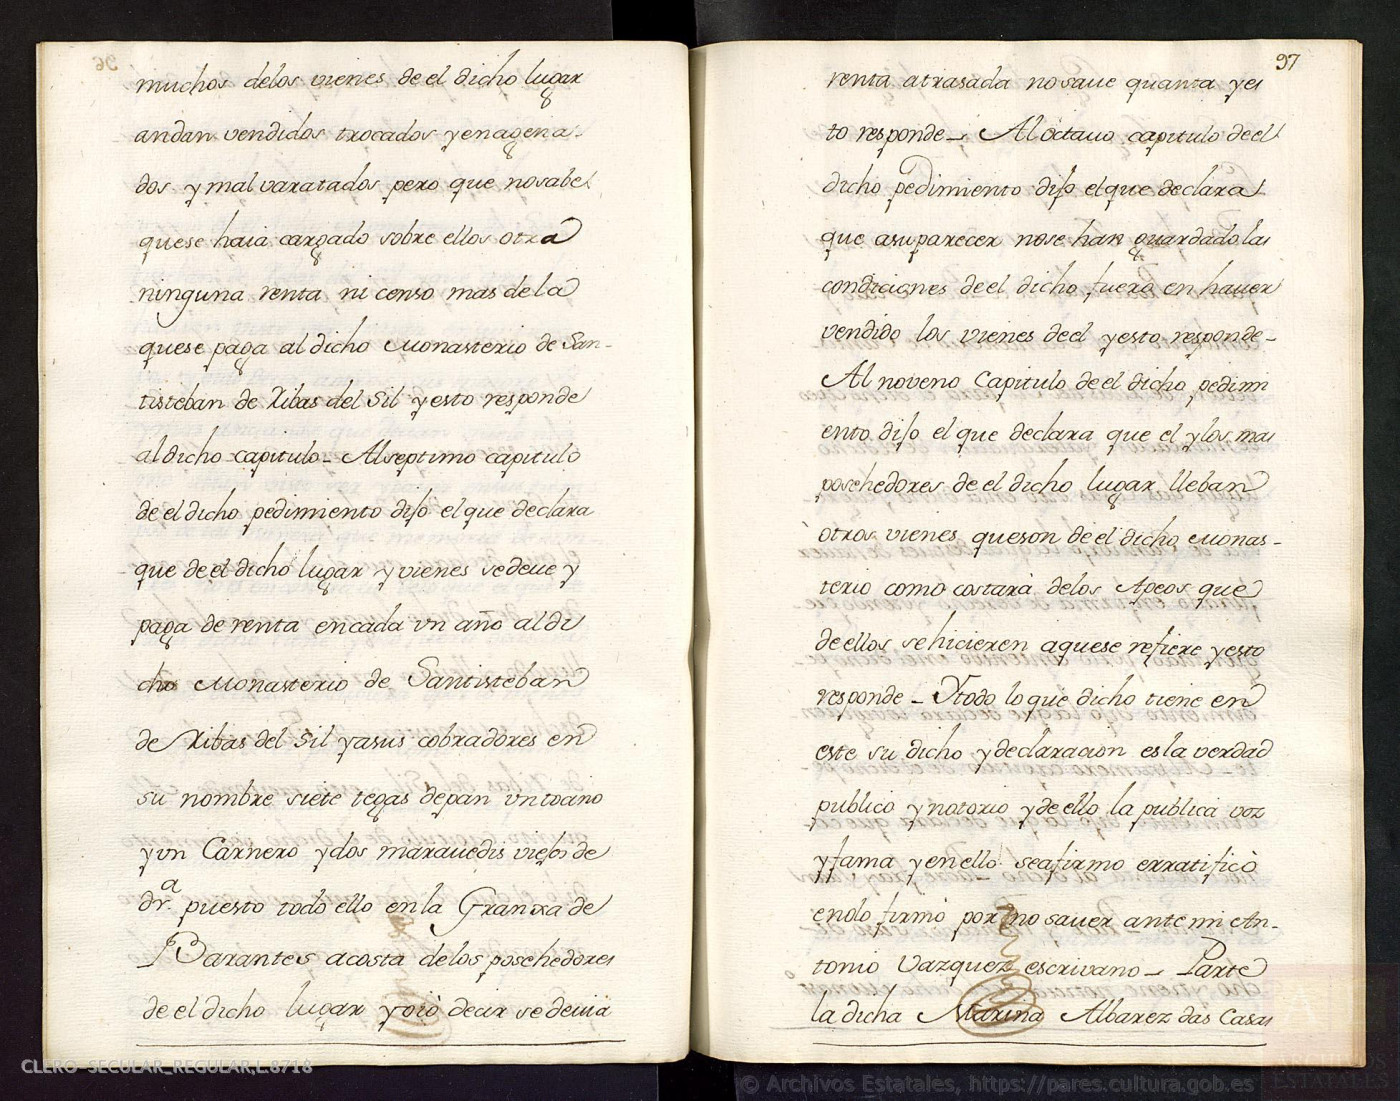 96
muchos delos vienes de el dicho lugar
andan vendidos trocados yenagena-
dos y mal varatados pero que nosabe
quese haia cargado sobre ellos otra
ninguna renta ni censo mas de la
quese paga al dicho Monasterio de San-
tisteban de Ribas del Sil yesto responde
al dicho capitulo - Alseptimo capitulo
de el dicho pedimiento dijo el que declara
que de el dicho lugar y vienes sedeue y
paga de renta encada vn año al di
cho Monasterio de Santisteban
de Ribas del Sil yasus cobradores en
su nombre siete tegas depan vntocino
yvn Carnero ydos marauedis viejos de
dra. puesto todo ello enla Granxa de
Barantes acosta delos poschedores
de el dicho lugar yoiò decir sedeuia
97
renta atrasada nosaue quanta yes
to responde - Aloctauo capitulo de el
dicho pedimiento dijo elque declara
que asuparecer nose han guardado las
condiciones de el dicho fuero en hauer
vendido los vienes deel yesto responde -
Al noveno Capitulo de el dicho pedimi
ento dijo el que declara que el ylos mas
poschedores de el dicho lugar lleban
otros vienes queson de el dicho Monas-
terio como costarà delos Apeos que
de ellos sehicieren aquese refiere yesto
responde - Ytodo loque dicho tiene en
este su dicho ydeclaracion esla verdad
publico ynotorio ydeello la publica voz
yfama yenello seafirmo erratificò
enolo firmò por no sauer ante mi An-
tonio Vazquez escrivano - Parte
la dicha Marina Albarez das Casas
CLERO-SECULAR_REGULAR,L.8718
© Archivos Estatales, https://pares.cultura.gob.es
ARCHIVOS
ESTATALES